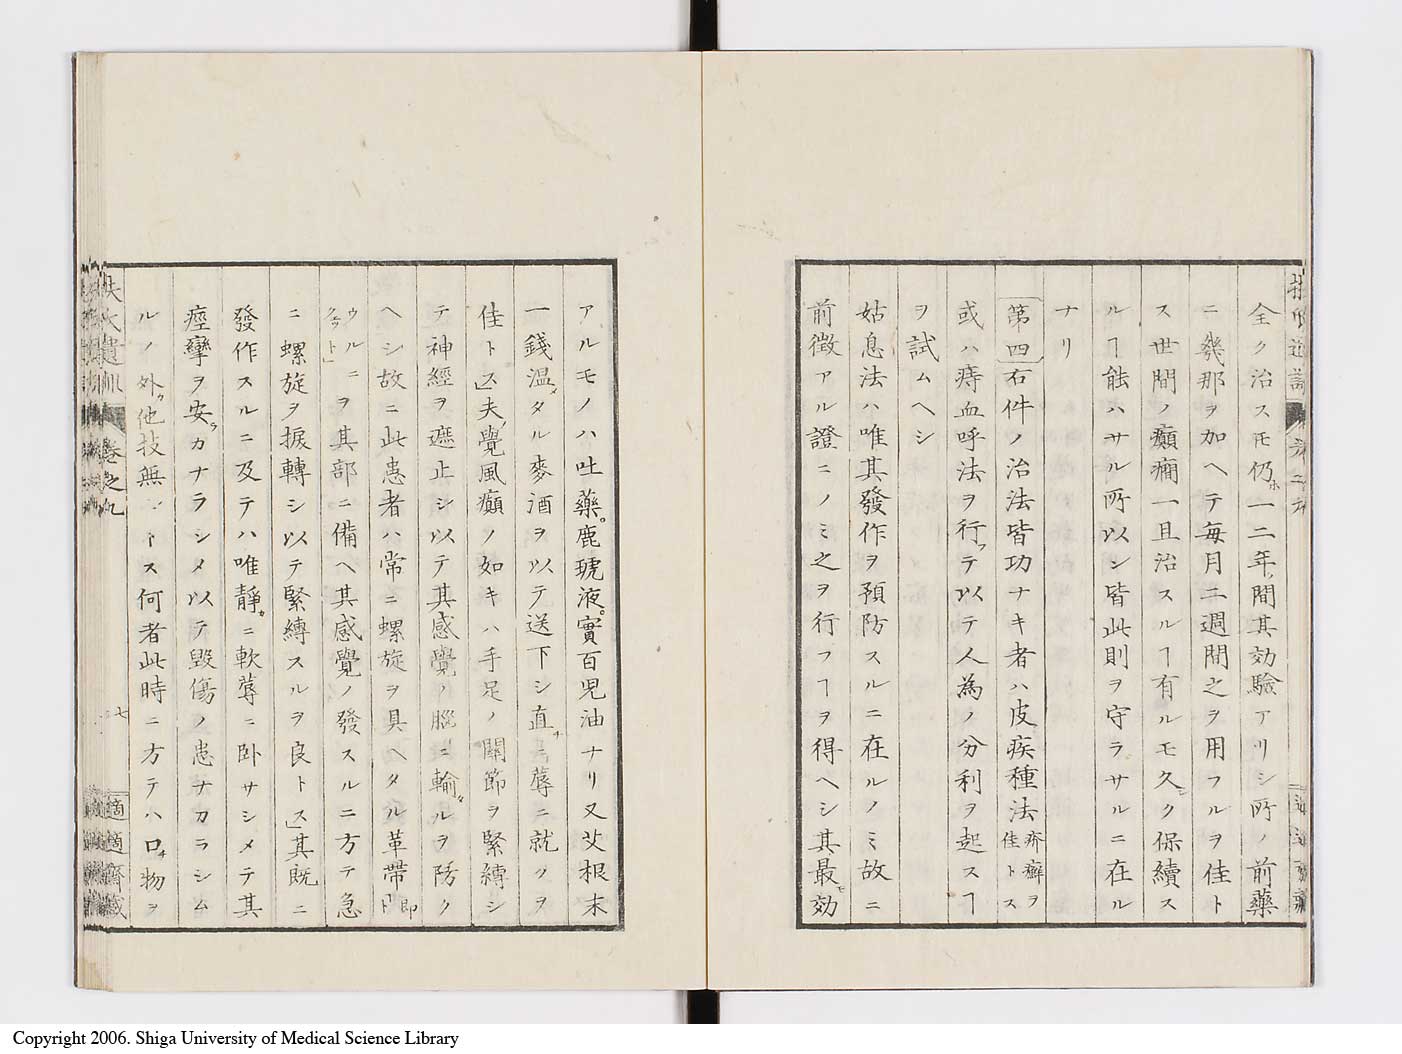 全ク治スモ仍ホ一二年ノ間其効驗アリシ所ノ前藥
ニ幾那ヲ加ヘテ毎月二週間之ヲ用フルヲ佳ト
ス世間ノ癲癇一旦治スルヿ有ルモ久シク保續ス
ルヿ能ハサル所以ン皆此則ヲ守ラサルニ在ル
ナリ
第四右件ノ治法皆功ナキ者ハ皮疾種法疥癬ヲ佳トス
或ハ痔血呼法ヲ行ツテ以テ人為ノ分利ヲ起スヿ
ヲ試ムヘシ
姑息法ハ唯其發作ヲ預防スルニ在ルノミ故ニ
前徴アル證ニノミ之ヲ行フヿヲ得ヘシ其最モ効
アルモノハ吐藥。鹿琥液。實百児油ナリ又艾根末
一錢温メタル麥酒ヲ以テ送下シ直チニ蓐ニ就クヲ
佳トス」夫ノ覺風癲ノ如キハ手足ノ關節ヲ緊縛シ
テ神經ヲ遮止シ以テ其感覺ノ腦ニ輸ルヲ防ク
ヘシ故ニ此患者ハ常ニ螺旋ヲ具ヘタル革帶即ト
ウルニケット」ヲ其部ニ備ヘ其感覺ノ發スルニ方テ急
ニ螺旋ヲ捩轉シ以テ緊縛スルヲ良トス」其既ニ
發作スルニ及テハ唯靜カニ軟蓐ニ臥サシメテ其
痙攣ヲ安ラカナラシメ以テ毀傷ノ患ナカラシム
ルノ外カ他技無シトス何者此時ニ方テハ口チ物ヲ
扶氏遺訓
卷之九
七
適適齋藏